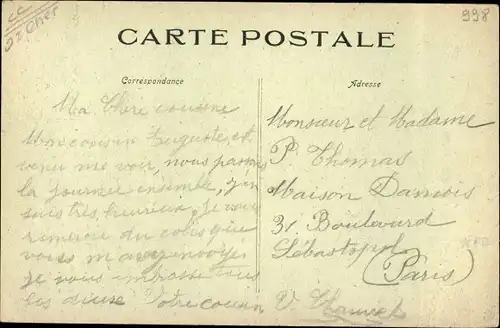 CARTE POSTALE
998
Cher
Correspondance
Ma Chère cousine
Mon cousin Auguste, est
venu me voir, nous passons
la journée ensemble, j'en
suis très, heureux, Je vous
remercie du colis que
vous m'avez envoyé,
je vous embrasse tous
les deux Votre cousin V.
Adresse
Monsieur et Madame
P. Thomas
Maison Damois
31. Boulevard
Sébastopol
(Paris)